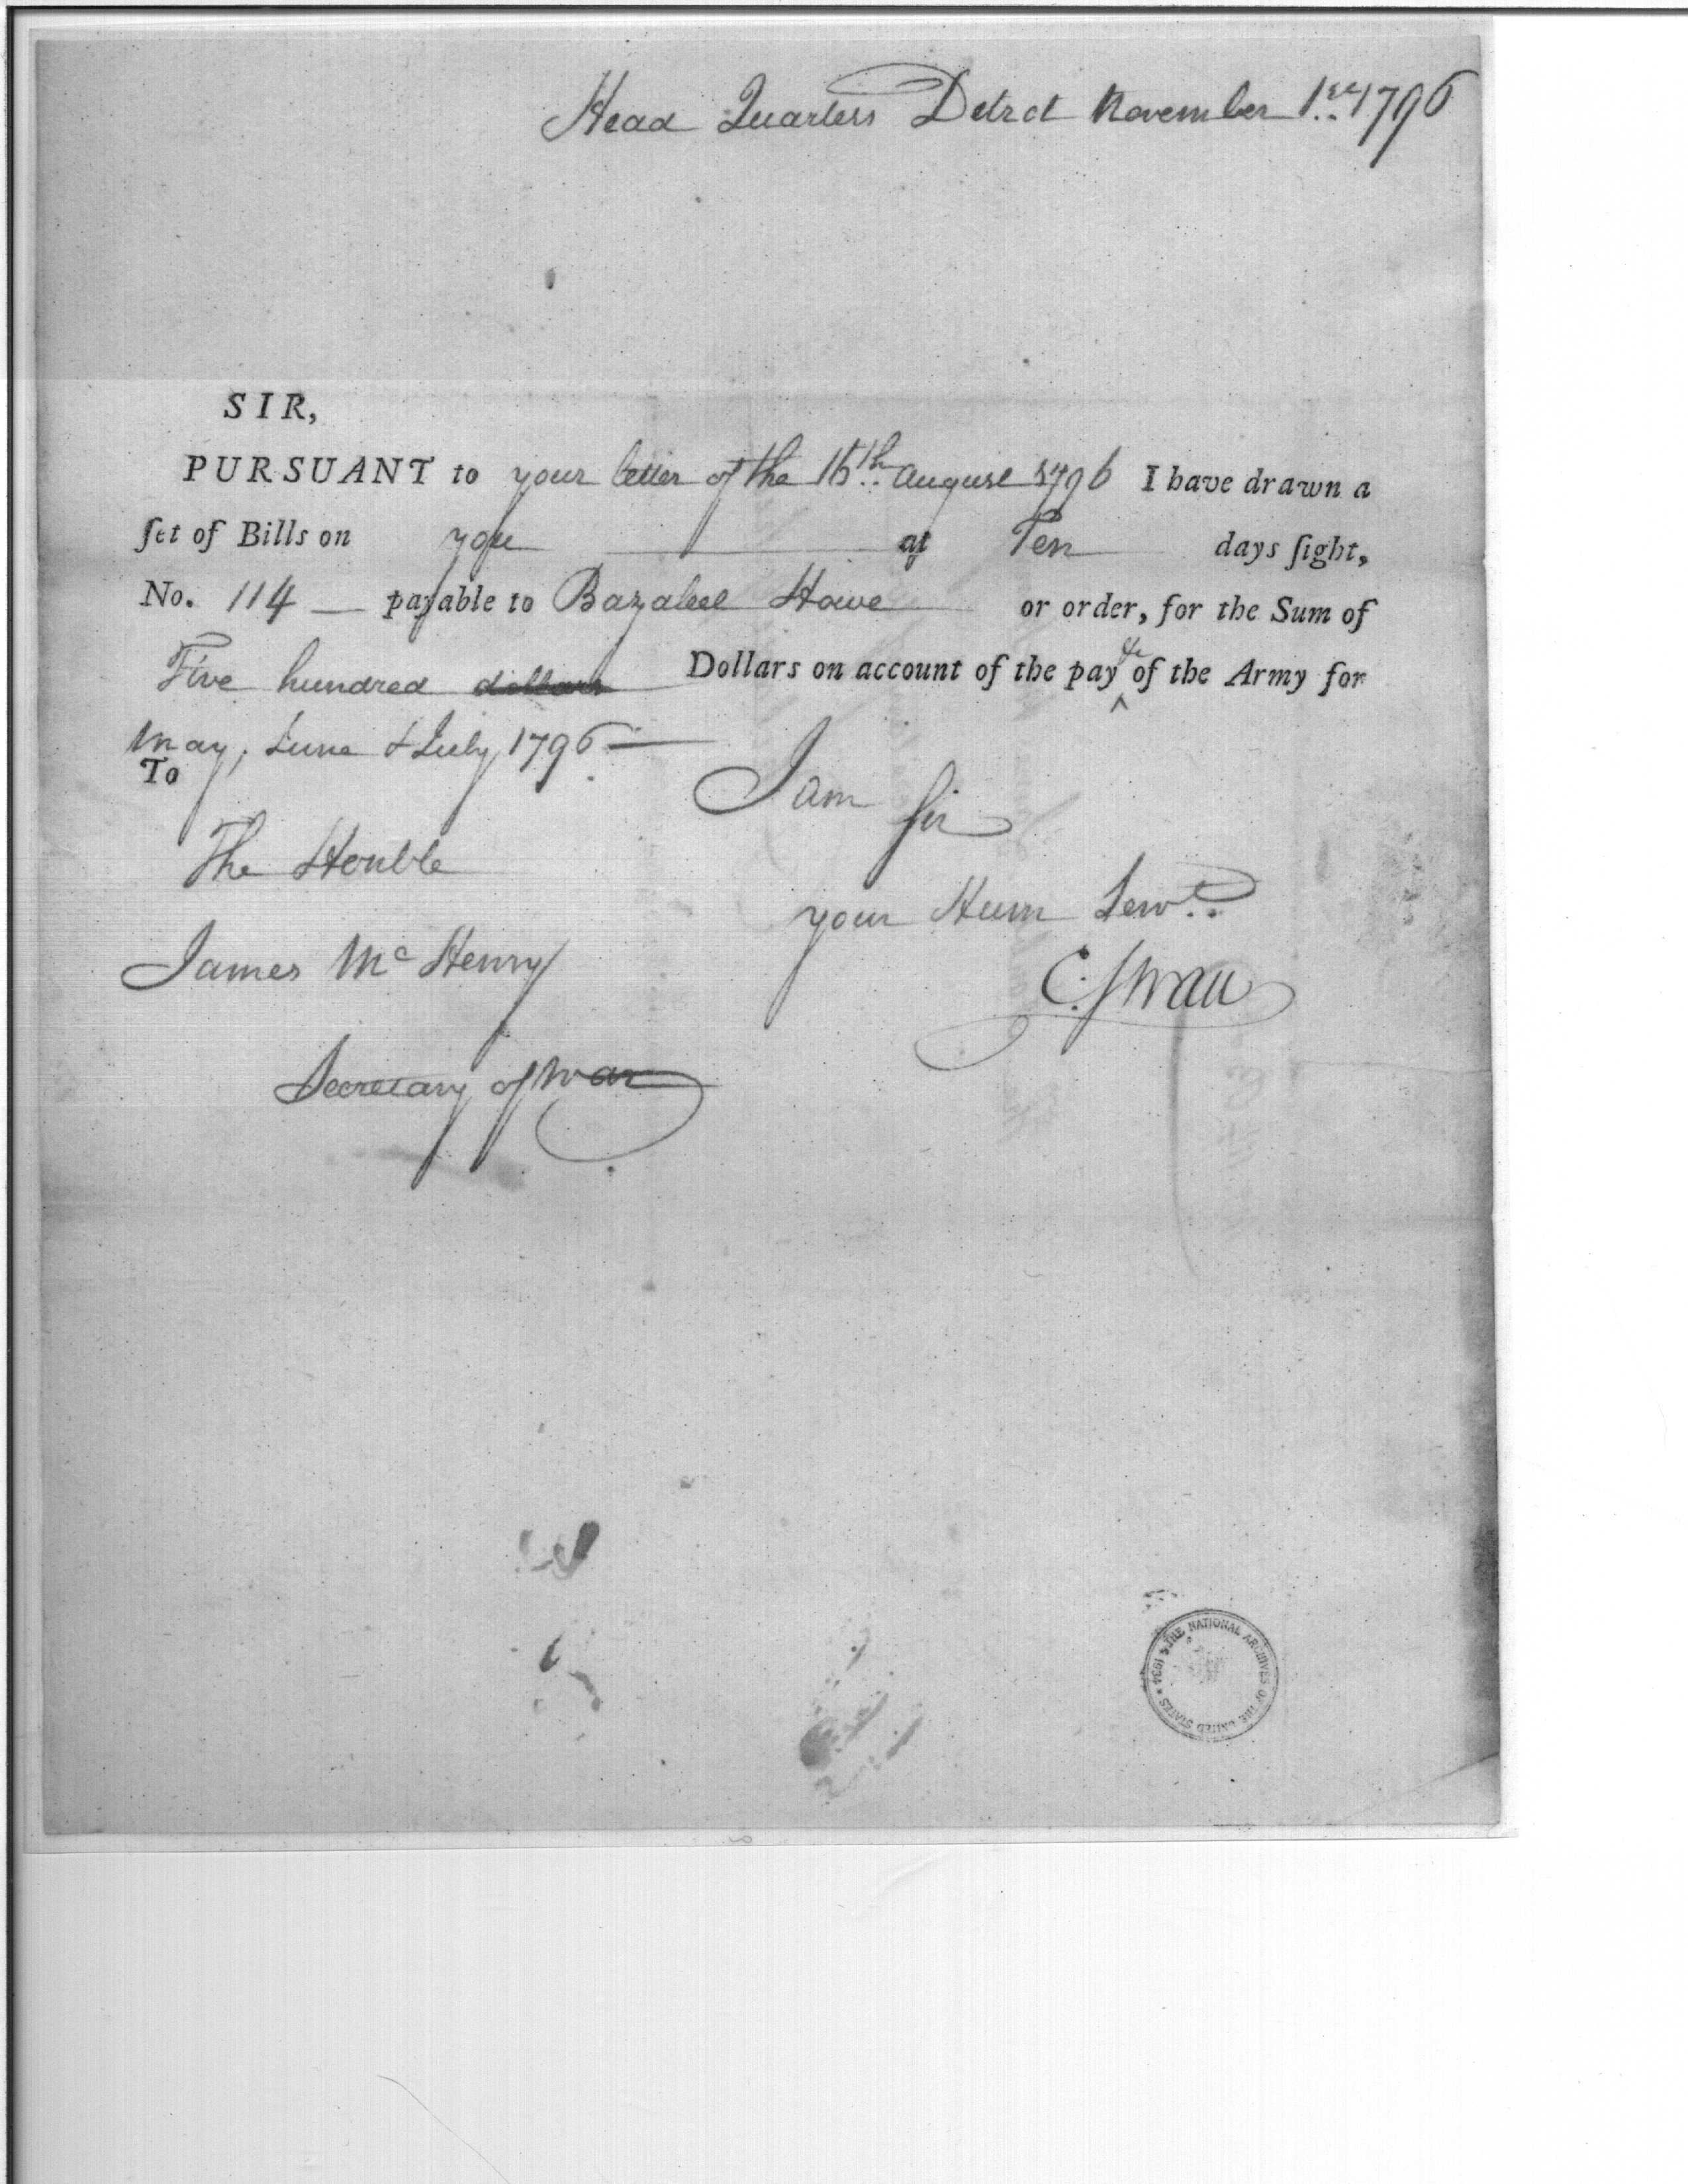 Head Quarters Detrct November 1st 1796
SIR,
PURSUANT to your letter of the 15th August 1796 I have drawn a
ſet of Bills on you at Ten days ſight,
No. 114 — payable to Bazaleel Howe or order, for the Sum of
Five hundred dollars Dollars on account of the pay &c of the Army for
May, June & July 1796 —
To
I am Sir
The Honble
your Hum Servt
James McHenry
C: Swan
Secretary of War
THE NATIONAL ARCHIVES OF THE UNITED STATES * 1934 *